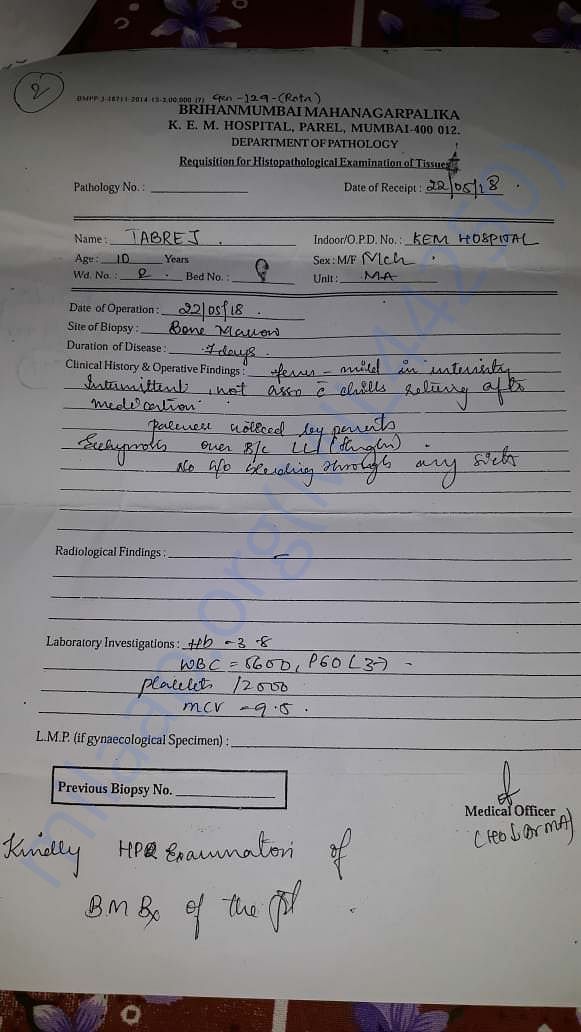 2
BMPP-J-16711-2014-15-3,00,000 (7) Gen-129-(Rota)
BRIHANMUMBAI MAHANAGARPALIKA
K. E. M. HOSPITAL, PAREL, MUMBAI-400 012.
DEPARTMENT OF PATHOLOGY
Requisition for Histopathological Examination of Tissues
Pathology No. : Date of Receipt : 22/05/18
Name : TABREJ Indoor/O.P.D. No. : KEM HOSPITAL
Age : 10 Years Sex : M/F Mch
Wd. No. : 2 Bed No. : Unit : MA
Date of Operation : 22/05/18
Site of Biopsy : Bone Marrow
Duration of Disease : 7 days
Clinical History & Operative Findings : fever - mild in intensity
Intermittent, not asso c̄ chills relieving after
medication
Paleness noticed by parents
Ecchymosis over B/L LL (thigh)
No h/o bleeding through any sites
Radiological Findings : -
Laboratory Investigations : Hb - 3.8
WBC = 5600, P60 L37
platelets 12000
MCV - 9.5
L.M.P. (if gynaecological Specimen) :
Previous Biopsy No.
Medical Officer
Kindly HPE Examination of
BM Bx of the pt
milaap.org